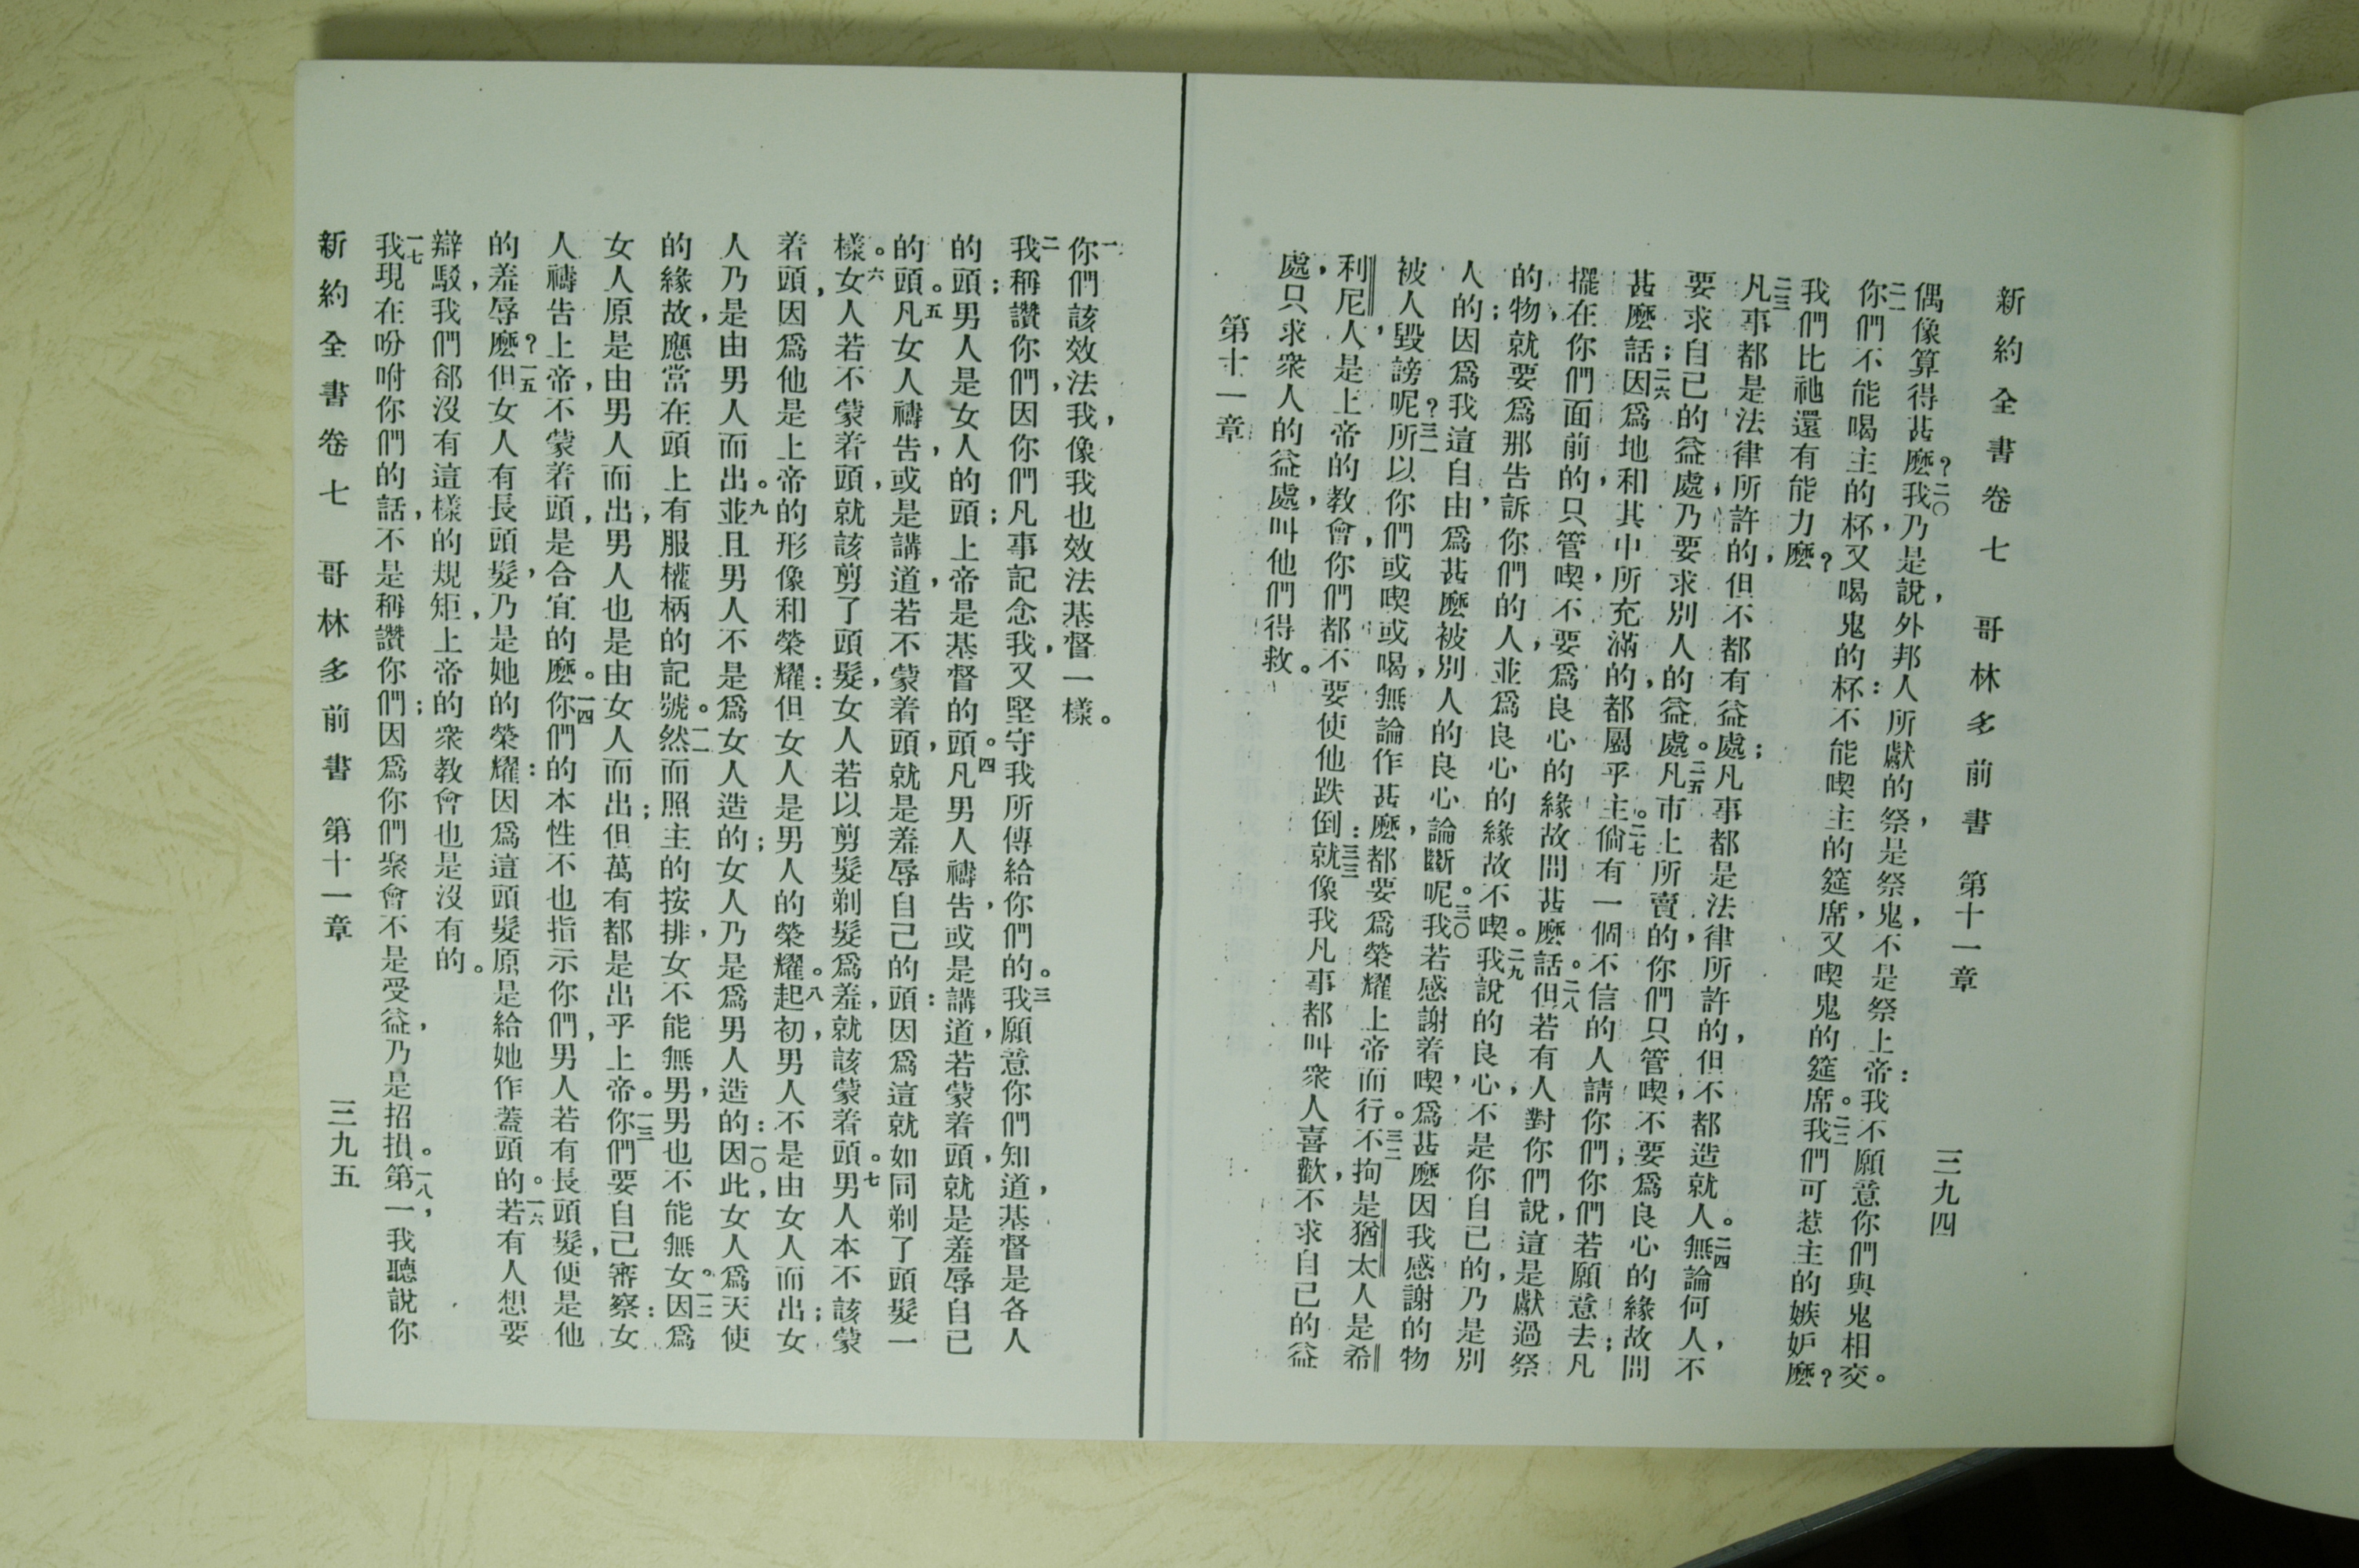 新約全書卷七　哥林多前書　第十一章　三九四
偶像算得甚麽？二〇我乃是說，外邦人所獻的祭，是祭鬼，不是祭上帝：我不願意你們與鬼相交。
二一你們不能喝主的杯，又喝鬼的杯：不能喫主的筵席，又喫鬼的筵席。二二我們可惹主的嫉妒麽？
我們比祂還有能力麽？
二三凡事都是法律所許的，但不都有益處；凡事都是法律所許的，但不都造就人。二四無論何人，不
要求自己的益處，乃要求別人的益處。二五凡市上所賣的，你們只管喫，不要爲良心的緣故問
甚麽話；二六因爲地和其中所充滿的，都屬乎主。二七倘有一個不信的人請你們，你們若願意去；凡
擺在你們面前的，只管喫，不要爲良心的緣故問甚麽話。二八但若有人對你們說，這是獻過祭
的物，就要爲那告訴你們的人，並爲良心的緣故不喫。二九我說的良心，不是你自己的，乃是別
人的；因爲我這自由，爲甚麽被別人的良心論斷呢。三〇我若感謝着喫，爲甚麽因我感謝的物
被人毀謗呢？三一所以你們或喫或喝，無論作甚麽，都要爲榮耀上帝而行。三二不拘是猶太人，是希
利尼人，是上帝的教會，你們都不要使他跌倒：三三就像我凡事都叫衆人喜歡，不求自己的益
處，只求衆人的益處，叫他們得救。
第十一章
一你們該效法我，像我也效法基督一樣。
二我稱讚你們，因你們凡事記念我，又堅守我所傳給你們的。三我願意你們知道，基督是各人
的頭；男人是女人的頭；上帝是基督的頭。四凡男人禱告，或是講道，若蒙着頭，就是羞辱自己
的頭。五凡女人禱告，或是講道，若不蒙着頭，就是羞辱自己的頭：因爲這就如同剃了頭髮一
樣。六女人若不蒙着頭，就該剪了頭髮，女人若以剪髮剃髮爲羞，就該蒙着頭。七男人本不該蒙
着頭，因爲他是上帝的形像和榮耀：但女人是男人的榮耀。八起初，男人不是由女人而出；女
人乃是由男人而出。九並且男人不是爲女人造的；女人乃是爲男人造的：一〇因此，女人爲天使
的緣故，應當在頭上有服權柄的記號。一一然而照主的按排，女不能無男，男也不能無女。一二因爲
女人原是由男人而出，男人也是由女人而出；但萬有都是出乎上帝。一三你們要自己審察：女
人禱告上帝，不蒙着頭，是合宜的麽。一四你們的本性不也指示你們，男人若有長頭髮，便是他
的羞辱麽？一五但女人有長頭髮，乃是她的榮耀：因爲這頭髮原是給她作蓋頭的。一六若有人想要
辯駁，我們郤沒有這樣的規矩，上帝的衆教會也是沒有的。
一七我現在吩咐你們的話，不是稱讚你們；因爲你們聚會不是受益，乃是招損。一八第一，我聽說你
新約全書卷七　哥林多前書　第十一章　三九五